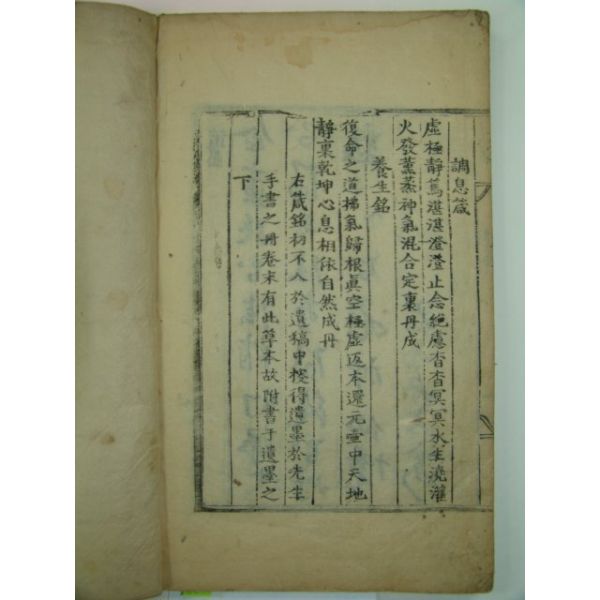 調息箴
虛極靜篤湛湛澄澄止念絶慮杳杳冥冥水生澆灌
火發薰蒸神氣混合定裏丹成
養生銘
復命之道拂氣歸根眞空極虛返本還元壷中天地
靜裏乾坤心息相依自然成丹
右箴銘初不入於遺稿中授得遺墨於先生
手書之冊卷末有此草本故附書于遺墨之
下